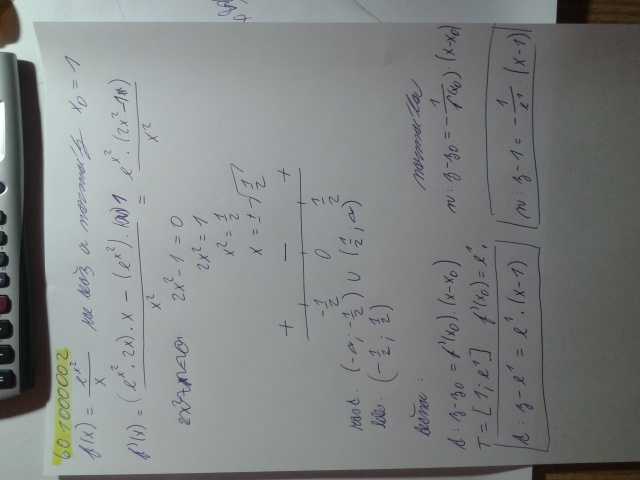 60.1000002
f(x) = e^{x^2}/x x_0 = 1
f'(x) = ((e^{x^2} · 2x) · x - (e^{x^2}) · 1)/x^2 = e^{x^2} · (2x^2-1)/x^2
2x^2-1=0
2x^2=1
x^2=1/2
x = ± √(1/2)
+ - +
-1/2 0 1/2
(-∞, -1/2) ∪ (1/2, ∞)
(-1/2; 1/2)
t: y-y_0 = f'(x_0) · (x-x_0)
T = [1; e^1] f'(x_0) = e^1
t: y - e^1 = e^1 · (x-1)
normála
n: y-y_0 = -1/f'(x_0) · (x-x_0)
n: y-1 = -1/e^1 (x-1)